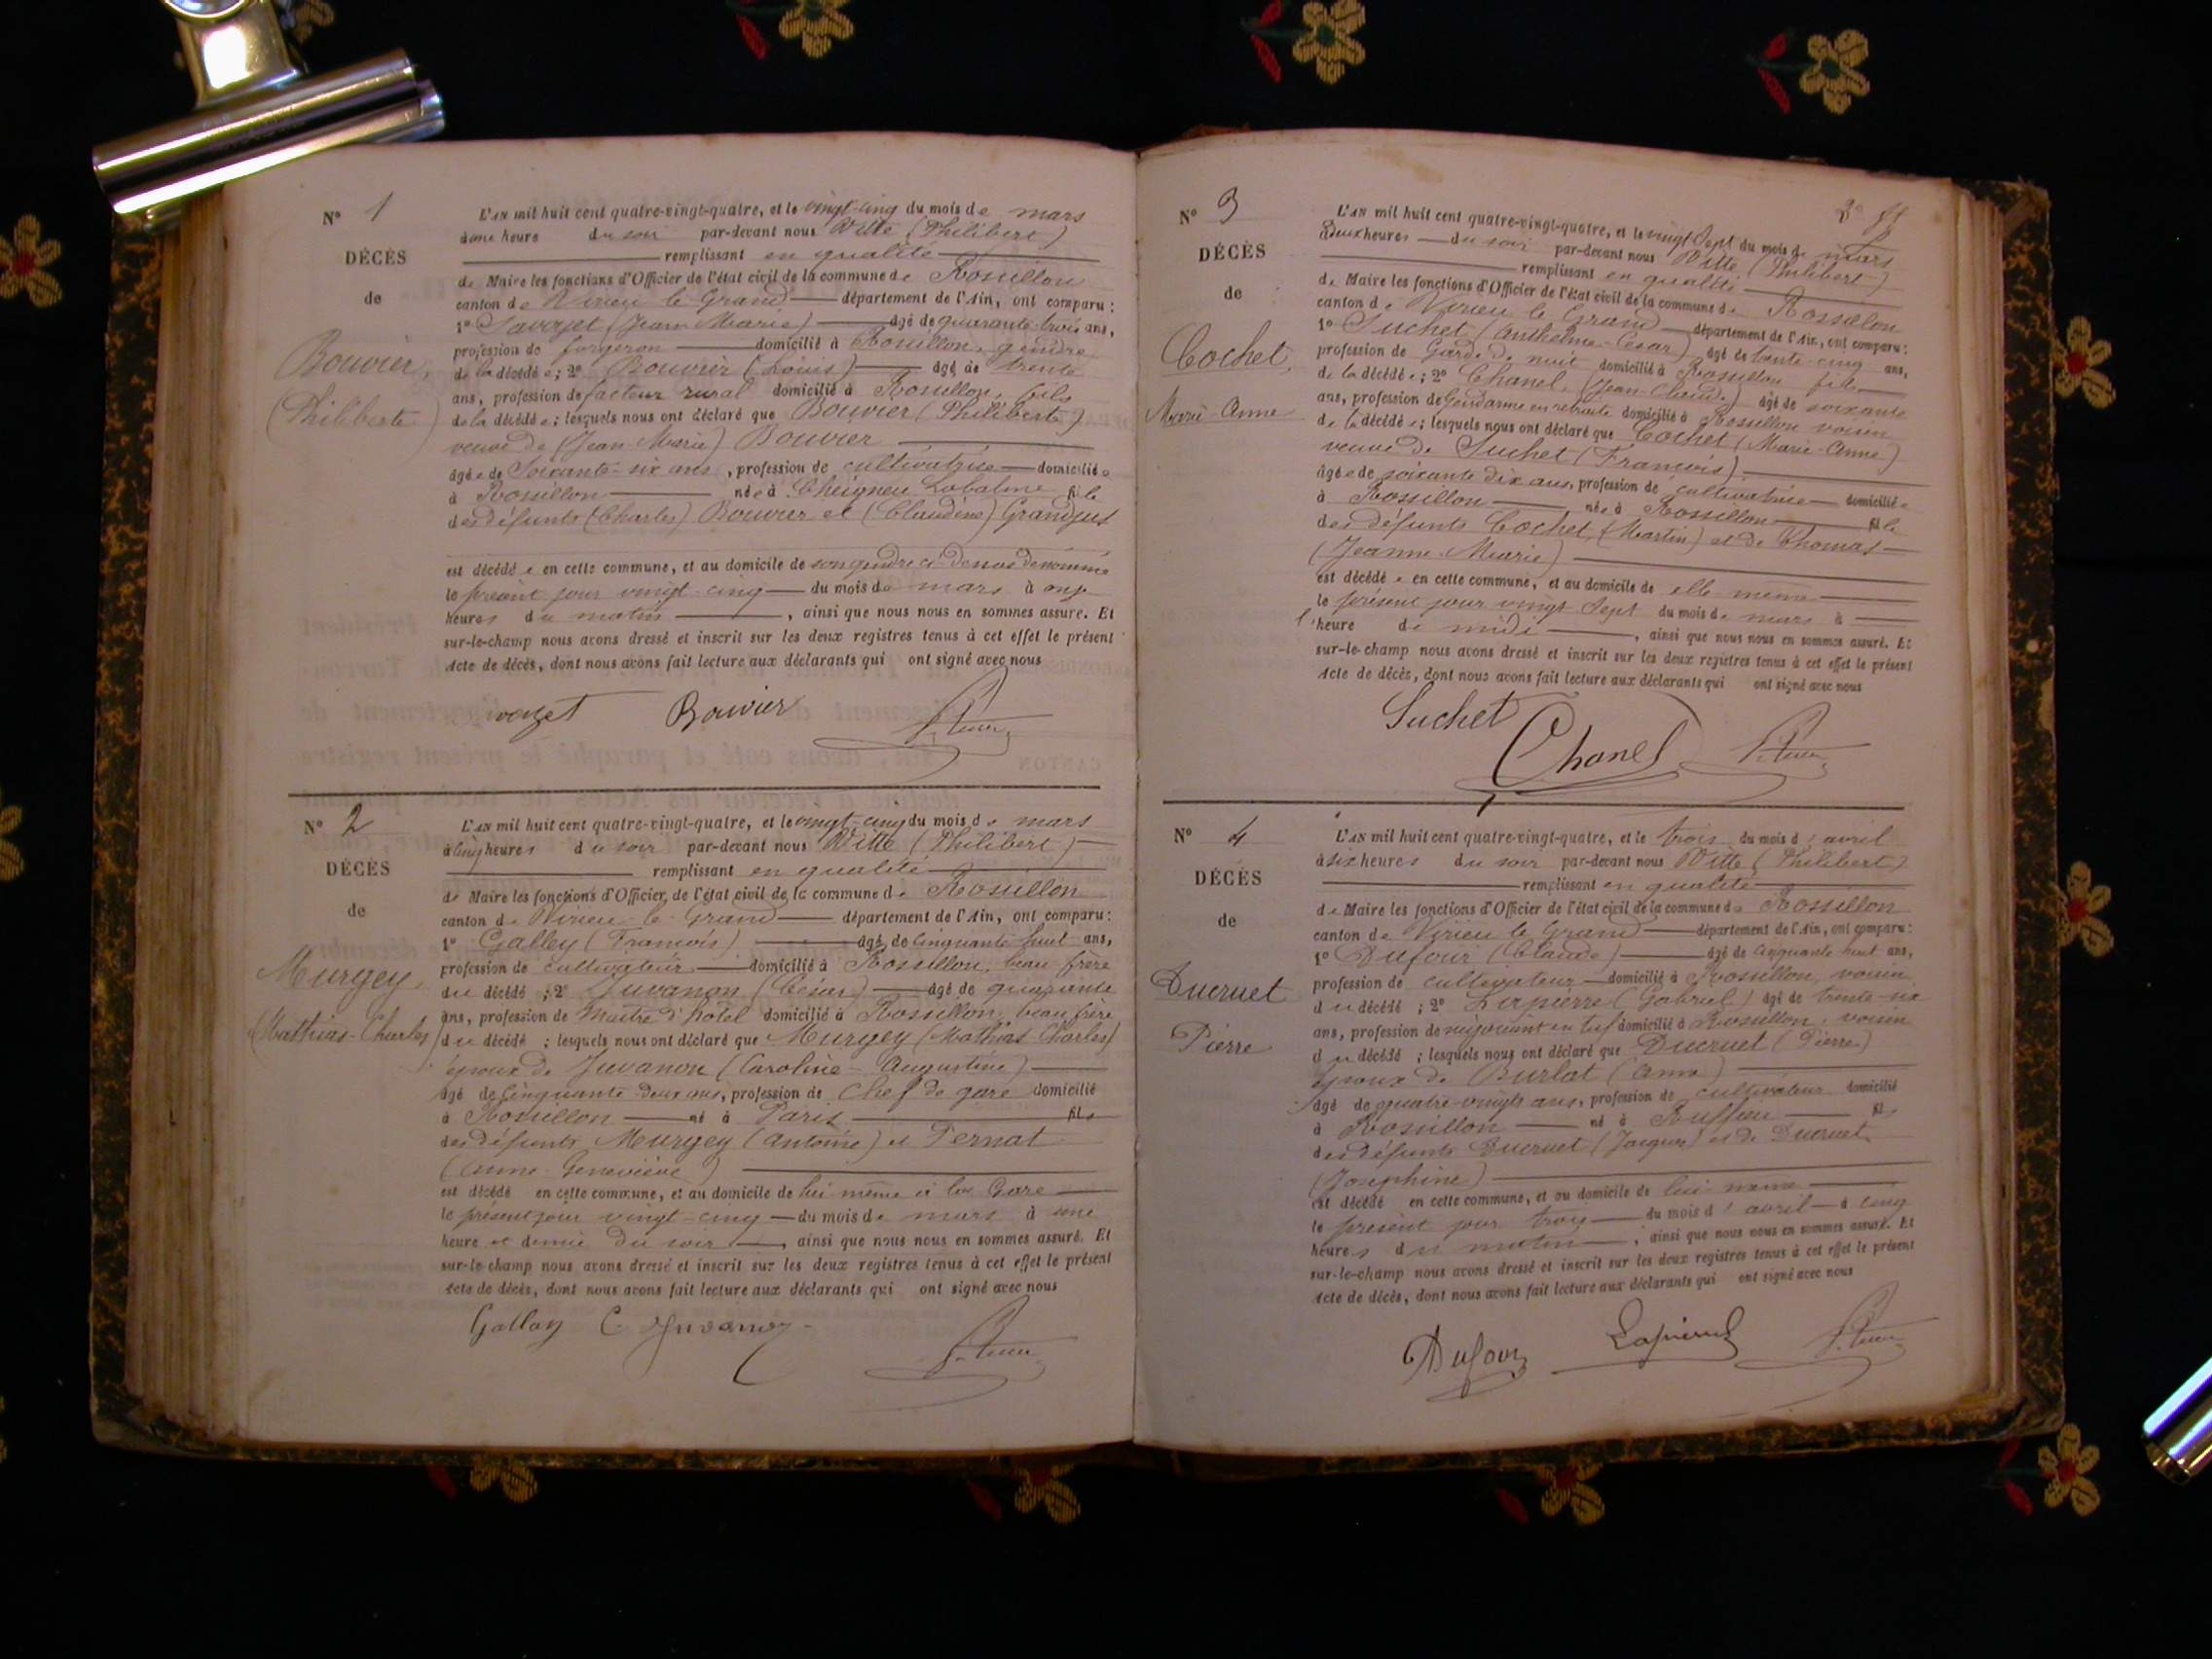 N° 1
DÉCÈS
de
Bouvier,
(Philiberte)
L'AN mil huit cent quatre-vingt-quatre, et le vingt-cinq du mois de mars
à une heure du soir par-devant nous Vitte (Philibert)
remplissant en qualité
de Maire les fonctions d'Officier de l'état civil de la commune de Rossillon
canton de Virieu le Grand département de l'Ain, ont comparu :
1° Savoyet (Jean Marie) âgé de quarante-trois ans,
profession de forgeron domicilié à Rossillon, gendre
de la décédée ; 2° Bouvier (Louis) âgé de trente
ans, profession de facteur rural domicilié à Rossillon, fils
de la décédée ; lesquels nous ont déclaré que Bouvier (Philiberte)
veuve de (Jean Marie) Bouvier
âgée de Soixante-six ans, profession de cultivatrice domiciliée
à Rossillon née à Cheigneu Labalme fille
des défunts (Charles) Bouvier et (Claudine) Grandjus
est décédée en cette commune, et au domicile de son gendre ci-dessus dénommé
le présent jour vingt-cinq du mois de mars à onze
heures du matin, ainsi que nous nous en sommes assuré. Et
sur-le-champ nous avons dressé et inscrit sur les deux registres tenus à cet effet le présent
Acte de décès, dont nous avons fait lecture aux déclarants qui ont signé avec nous
Bouvier
N° 2
DÉCÈS
de
Murgey,
(Mathias-Charles)
L'AN mil huit cent quatre-vingt-quatre, et le vingt-cinq du mois de mars
à cinq heures du soir par-devant nous Vitte (Philibert)
remplissant en qualité
de Maire les fonctions d'Officier de l'état civil de la commune de Rossillon
canton de Virieu-le-Grand département de l'Ain, ont comparu :
1° Galley (François) âgé de cinquante huit ans,
profession de cultivateur domicilié à Rossillon, beau frère
du décédé ; 2° Juvanon (César) âgé de quarante
ans, profession de Maître d'hôtel domicilié à Rossillon, beau frère
du décédé ; lesquels nous ont déclaré que Murgey (Mathias Charles)
époux de Juvanon (Caroline-Augustine)
âgé de Cinquante deux ans, profession de Chef de gare domicilié
à Rossillon né à Paris fils
des défunts Murgey (Antoine) et Pernat
(Anne-Geneviève)
est décédé en cette commune, et au domicile de lui même à la Gare
le présent jour vingt-cinq du mois de mars à une
heure et demie du soir, ainsi que nous nous en sommes assuré. Et
sur-le-champ nous avons dressé et inscrit sur les deux registres tenus à cet effet le présent
Acte de décès, dont nous avons fait lecture aux déclarants qui ont signé avec nous
Galley C. Juvanon
2e
N° 3
DÉCÈS
de
Cochet,
Marie-Anne
L'AN mil huit cent quatre-vingt-quatre, et le vingt Sept du mois de mars
à deux heures du soir par-devant nous Vitte (Philibert)
remplissant en qualité
de Maire les fonctions d'Officier de l'état civil de la commune de Rossillon
canton de Virieu le Grand département de l'Ain, ont comparu :
1° Suchet (Anthelme-César) âgé de trente-cinq ans,
profession de Garde de nuit domicilié à Rossillon fils
de la décédée ; 2° Chanel (Jean-Claude) âgé de soixante
ans, profession de Gendarme en retraite domicilié à Rossillon voisin
de la décédée ; lesquels nous ont déclaré que Cochet (Marie-Anne)
veuve de Suchet (François)
âgée de soixante dix ans, profession de cultivatrice domiciliée
à Rossillon née à Rossillon fille
des défunts Cochet (Martin) et de Thomas
(Jeanne-Marie)
est décédée en cette commune, et au domicile de elle même
le présent jour vingt-Sept du mois de mars à
l'heure de midi, ainsi que nous nous en sommes assuré. Et
sur-le-champ nous avons dressé et inscrit sur les deux registres tenus à cet effet le présent
Acte de décès, dont nous avons fait lecture aux déclarants qui ont signé avec nous
Suchet
Chanel
N° 4
DÉCÈS
de
Ducruet
Pierre
L'AN mil huit cent quatre-vingt-quatre, et le trois du mois d'avril
à six heures du soir par-devant nous Vitte (Philibert)
remplissant en qualité
de Maire les fonctions d'Officier de l'état civil de la commune de Rossillon
canton de Virieu le Grand département de l'Ain, ont comparu :
1° Dufour (Claude) âgé de cinquante huit ans,
profession de cultivateur domicilié à Rossillon, voisin
du décédé ; 2° Lapierre (Gabriel) âgé de trente-six
ans, profession de négociant en tuf domicilié à Rossillon, voisin
du décédé ; lesquels nous ont déclaré que Ducruet (Pierre)
époux de Burlat (Anne)
âgé de quatre-vingts ans, profession de cultivateur domicilié
à Rossillon né à Ruffieu fils
des défunts Ducruet (Jacques) et de Ducruet
(Josephine)
est décédé en cette commune, et au domicile de lui même
le présent jour trois du mois d'avril à cinq
heures du matin, ainsi que nous nous en sommes assuré. Et
sur-le-champ nous avons dressé et inscrit sur les deux registres tenus à cet effet le présent
Acte de décès, dont nous avons fait lecture aux déclarants qui ont signé avec nous
Dufour Lapierre